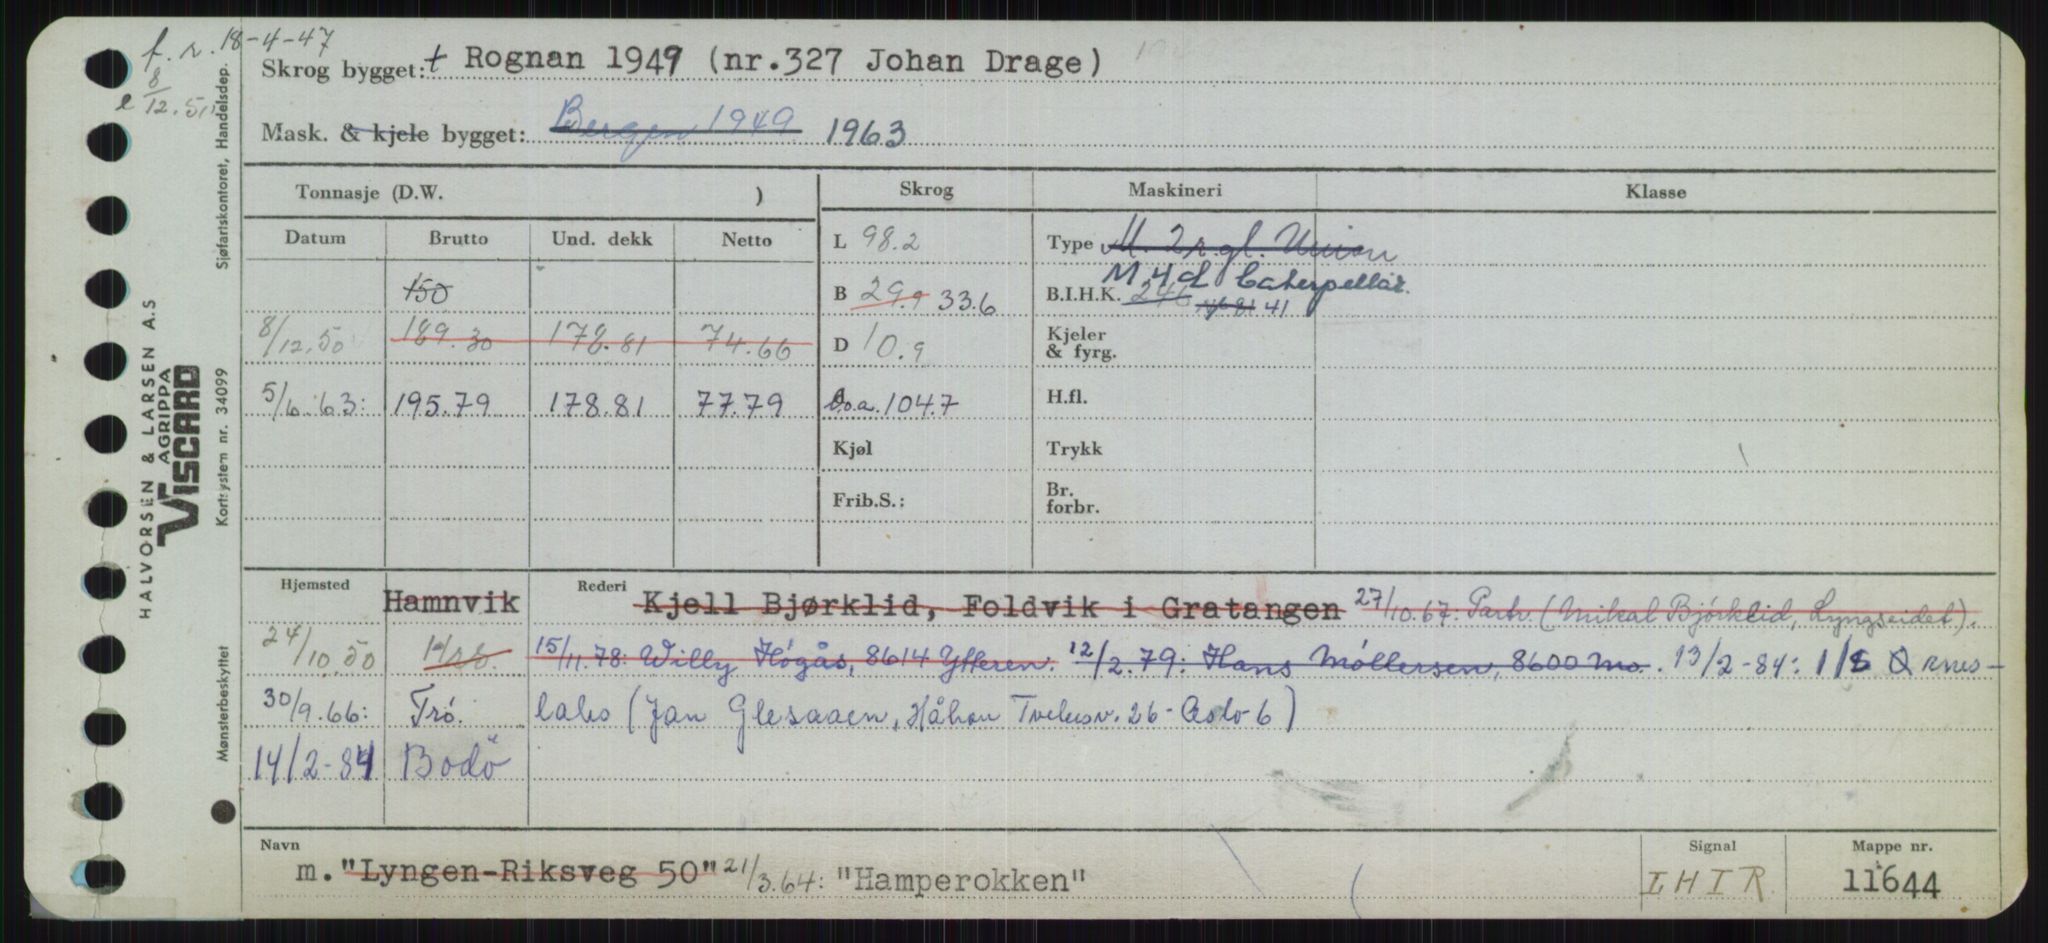 f. r. 18-4-47
8
e 12. 50
Skrog bygget: t Rognan 1949 (nr.327 Johan Drage)
Mask. & kjele bygget: Bergen 1949 1963
Tonnasje (D.W. ) Skrog Maskineri Klasse
Datum Brutto Und. dekk Netto L 98.2 Type M. 2r.gl. Union
M 4 d Caterpellar.
150 B 29.9 33.6 B.I.H.K. 246 41
8/12.50 189.30 178.81 74.66 D 10.9 Kjeler & fyrg.
5/6.63: 195.79 178.81 77.79 l.o.a. 104.7 H.fl.
Kjøl Trykk
Frib.S.: Br. forbr.
Hjemsted Hamnvik Rederi Kjell Bjørklid, Foldvik i Gratangen 27/10.67. Partr. (Mikal Bjørklid, Lyngseidet).
24/10 50 15/11.78: Willy Høgås, 8614 Ytteren. 12/2.79: Hans Møllersen, 8600 Mo. 13/2-84: I/S Ørnes-
30/9.66: Trö. laks (Jan Glesaaen, Håkon Tveter v. 26 - Oslo 6)
14/2-84 Bodö
Navn Signal Mappe nr.
m. "Lyngen-Riksveg 50" 21/3.64: "Hamperokken" LHIR 11644
HALVORSEN & LARSEN A.S
AGRIPPA
VISCARD
Sjøfartskontoret, Handelsdep.
Kortsystem nr. 34099
Mønsterbeskyttet